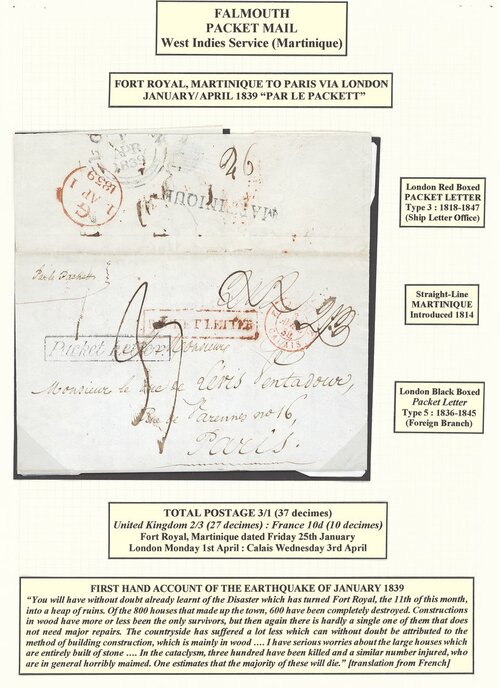 FALMOUTH
PACKET MAIL
West Indies Service (Martinique)
FORT ROYAL, MARTINIQUE TO PARIS VIA LONDON
JANUARY/ APRIL 1839 “PAR LE PACKETT”
APR
1839
26
1 AP 1
1839
MARTINIQUE
Par le Packet
PACKET LETTER
CALAIS
Packet Letter
Monsieur
Monsieur le Duc de Levis Ventadour,
Rue de Varennes no 16,
Paris.
London Red Boxed
PACKET LETTER
Type 3 : 1818-1847
(Ship Letter Office)
Straight-Line
MARTINIQUE
Introduced 1814
London Black Boxed
Packet Letter
Type 5 : 1836-1845
(Foreign Branch)
TOTAL POSTAGE 3/1 (37 decimes)
United Kingdom 2/3 (27 decimes) : France 10d (10 decimes)
Fort Royal, Martinique dated Friday 25th January
London Monday 1st April : Calais Wednesday 3rd April
FIRST HAND ACCOUNT OF THE EARTHQUAKE OF JANUARY 1839
“You will have without doubt already learnt of the Disaster which has turned Fort Royal, the 11th of this month,
into a heap of ruins. Of the 800 houses that made up the town, 600 have been completely destroyed. Constructions
in wood have more or less been the only survivors, but then again there is hardly a single one of them that does
not need major repairs. The countryside has suffered a lot less which can without doubt be attributed to the
method of building construction, which is mainly in wood .... I have serious worries about the large houses which
are entirely built of stone .... In the cataclysm, three hundred have been killed and a similar number injured, who
are in general horribly maimed. One estimates that the majority of these will die.” [translation from French]